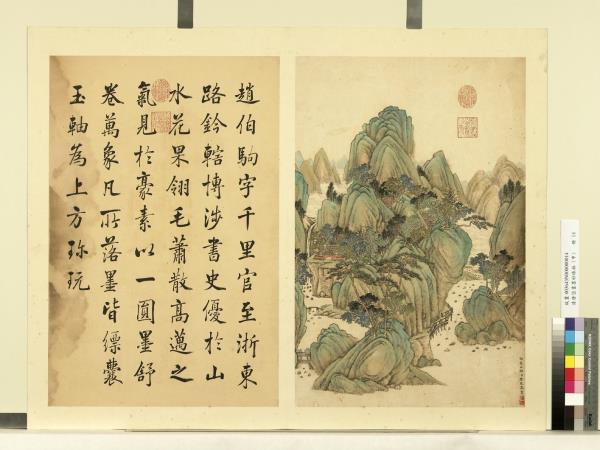 趙伯駒字千里官至浙東
路鈐轄博涉書史優於山
水花果翎毛蕭散高邁之
氣見於豪素以一圓墨舒
卷萬象凡所落墨皆縹囊
玉軸為上方珎玩